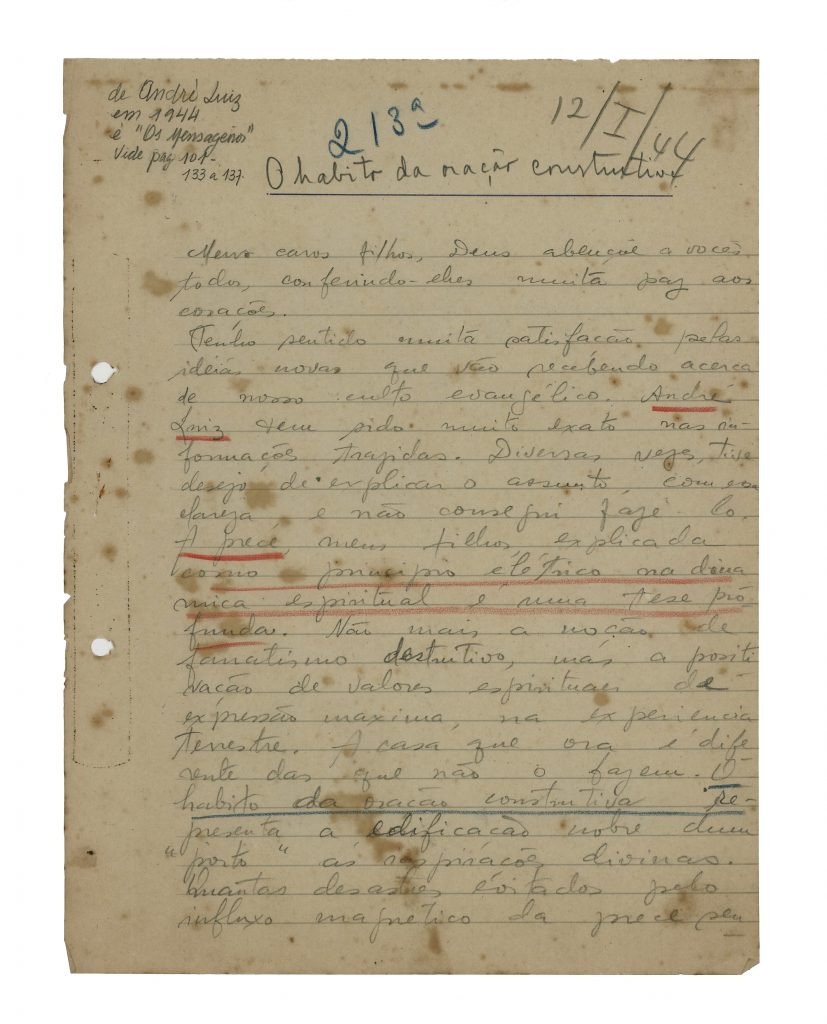 de André Luiz
em 1944
é "Os Mensageiros"
Vide pag 101-
133 a 137.
213ª
12/I/44
O habito da oração construtiva
Meus caros filhos, Deus abençoe a vocês
todos, conferindo-lhes muita paz aos
corações.
Tenho sentido muita satisfação pelas
ideias novas que vão recebendo acerca
de nosso culto evangélico. André
Luiz tem sido muito exato nas in-
formações trazidas. Diversas vezes, tive
desejo de explicar o assunto, com essa
clareza e não consegui fazê lo.
A prece, meus filhos, explicada
como principio elétrico na dina
mica espiritual é uma tese pro-
funda. Não mais a noção de
fanatismo destrutivo, mas a positi
vação de valores espirituaes de
expressão maxima, na experiencia
terrestre. A casa que ora é dife
rente das que não o fazem. O
habito da oração construtiva re-
presenta a edificação nobre dum
"porto" ás inspirações divinas.
Quantos desastres evitados pelo
influxo magnetico da prece sen